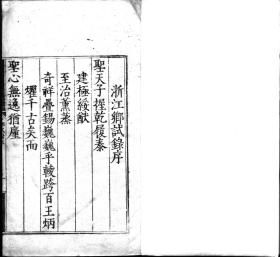 浙江鄉試錄序
聖天子握乾履泰
建極綏猷
至治薰蒸
奇祥疊錫巍巍乎駿跨百王炳
燿千古矣而
聖心無逸猶廑